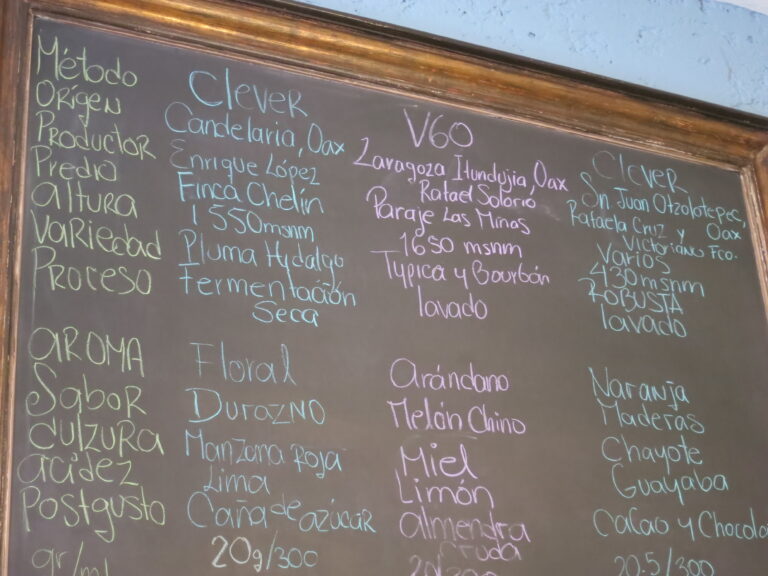 Método
Orígen
Productor
Predio
altura
Variedad
Proceso
aroma
Sabor
dulzura
acidez
Postgusto
gr/ml
Clever
Candelaria, Oax
Enrique López
Finca Chelín
1 550 msnm
Pluma Hydalgo
Fermentación
Seca
Floral
Durazno
Manzana Roja
Lima
Caña de azúcar
20g/300
V60
Zaragoza Itundujia, Oax
Rafael Solorio
Paraje Las Minas
1650 msnm
Typica y Bourbón
lavado
Arándano
Melón Chino
Miel
Limón
almendra
Cruda
20/300
Clever
Sn Juan Otzolotepec,
Oax
Rafaela Cruz y
Victoriano Fco.
Varios
430 msnm
Robusta
lavado
Naranja
Maderas
Chayote
Guayaba
Cacao y Chocola
20.5/300